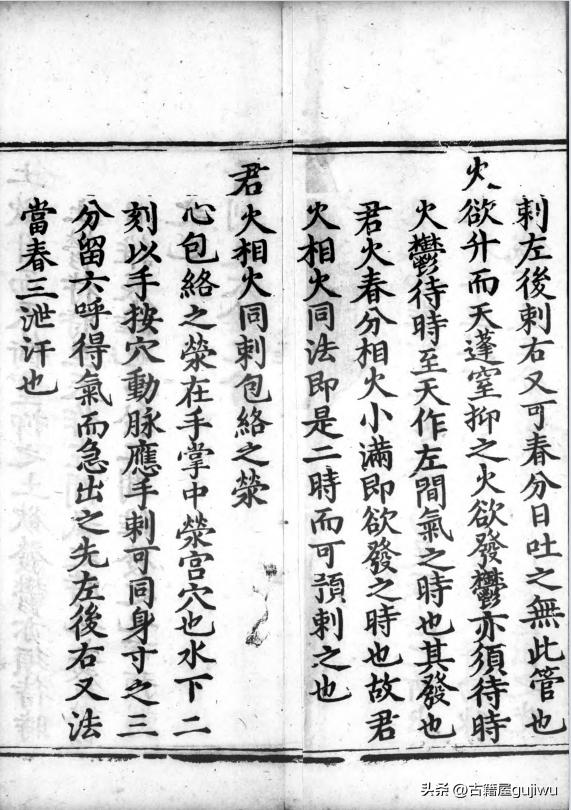 刺左後刺右又可春分日吐之無此管也
火欲升而天蓬窒抑之火欲發鬱亦須待時
火鬱待時至天作左間氣之時也其發也
君火春分相火小滿即欲發之時也故君
火相火同法即是二時而可預刺之也
君火相火同刺包絡之滎
心包絡之滎在手掌中滎宮穴也水下二
刻以手按穴動脉應手刺可同身寸之三
分留六呼得氣而急出之先左後右又法
當春三泄汗也
头条 @古籍屋gujiwu